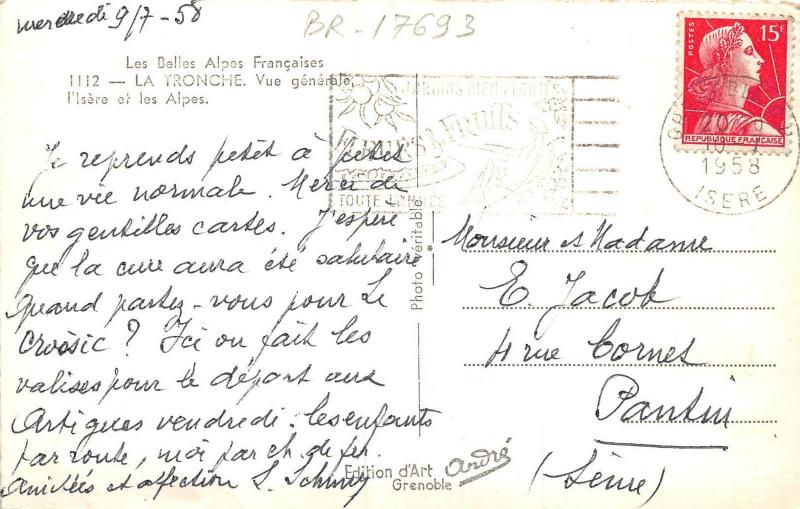 mercredi 9/7-58
BR-17693
Les Belles Alpes Françaises
1112 — LA TRONCHE. Vue générale,
l'Isère et les Alpes.
Je reprends petit à petit
une vie normale. Merci de
vos gentilles cartes. J'espère
que la cure aura été salutaire
Quand partez-vous pour Le
Croisic? Ici on fait les
valises pour le départ aux
Artigues vendredi: les enfants
par route, moi par ch. de fer.
Amitiés et affection S.
Photo Véritable
Edition d'Art André
Grenoble
JARDINS BIEN PLANTÉS
FLEURS & FRUITS
TOUTE L'ANNÉE
POSTES 15F
REPUBLIQUE FRANÇAISE
1958
ISERE
Monsieur et Madame
E. Jacob
4 rue Cornet
Pantin
(Seine)